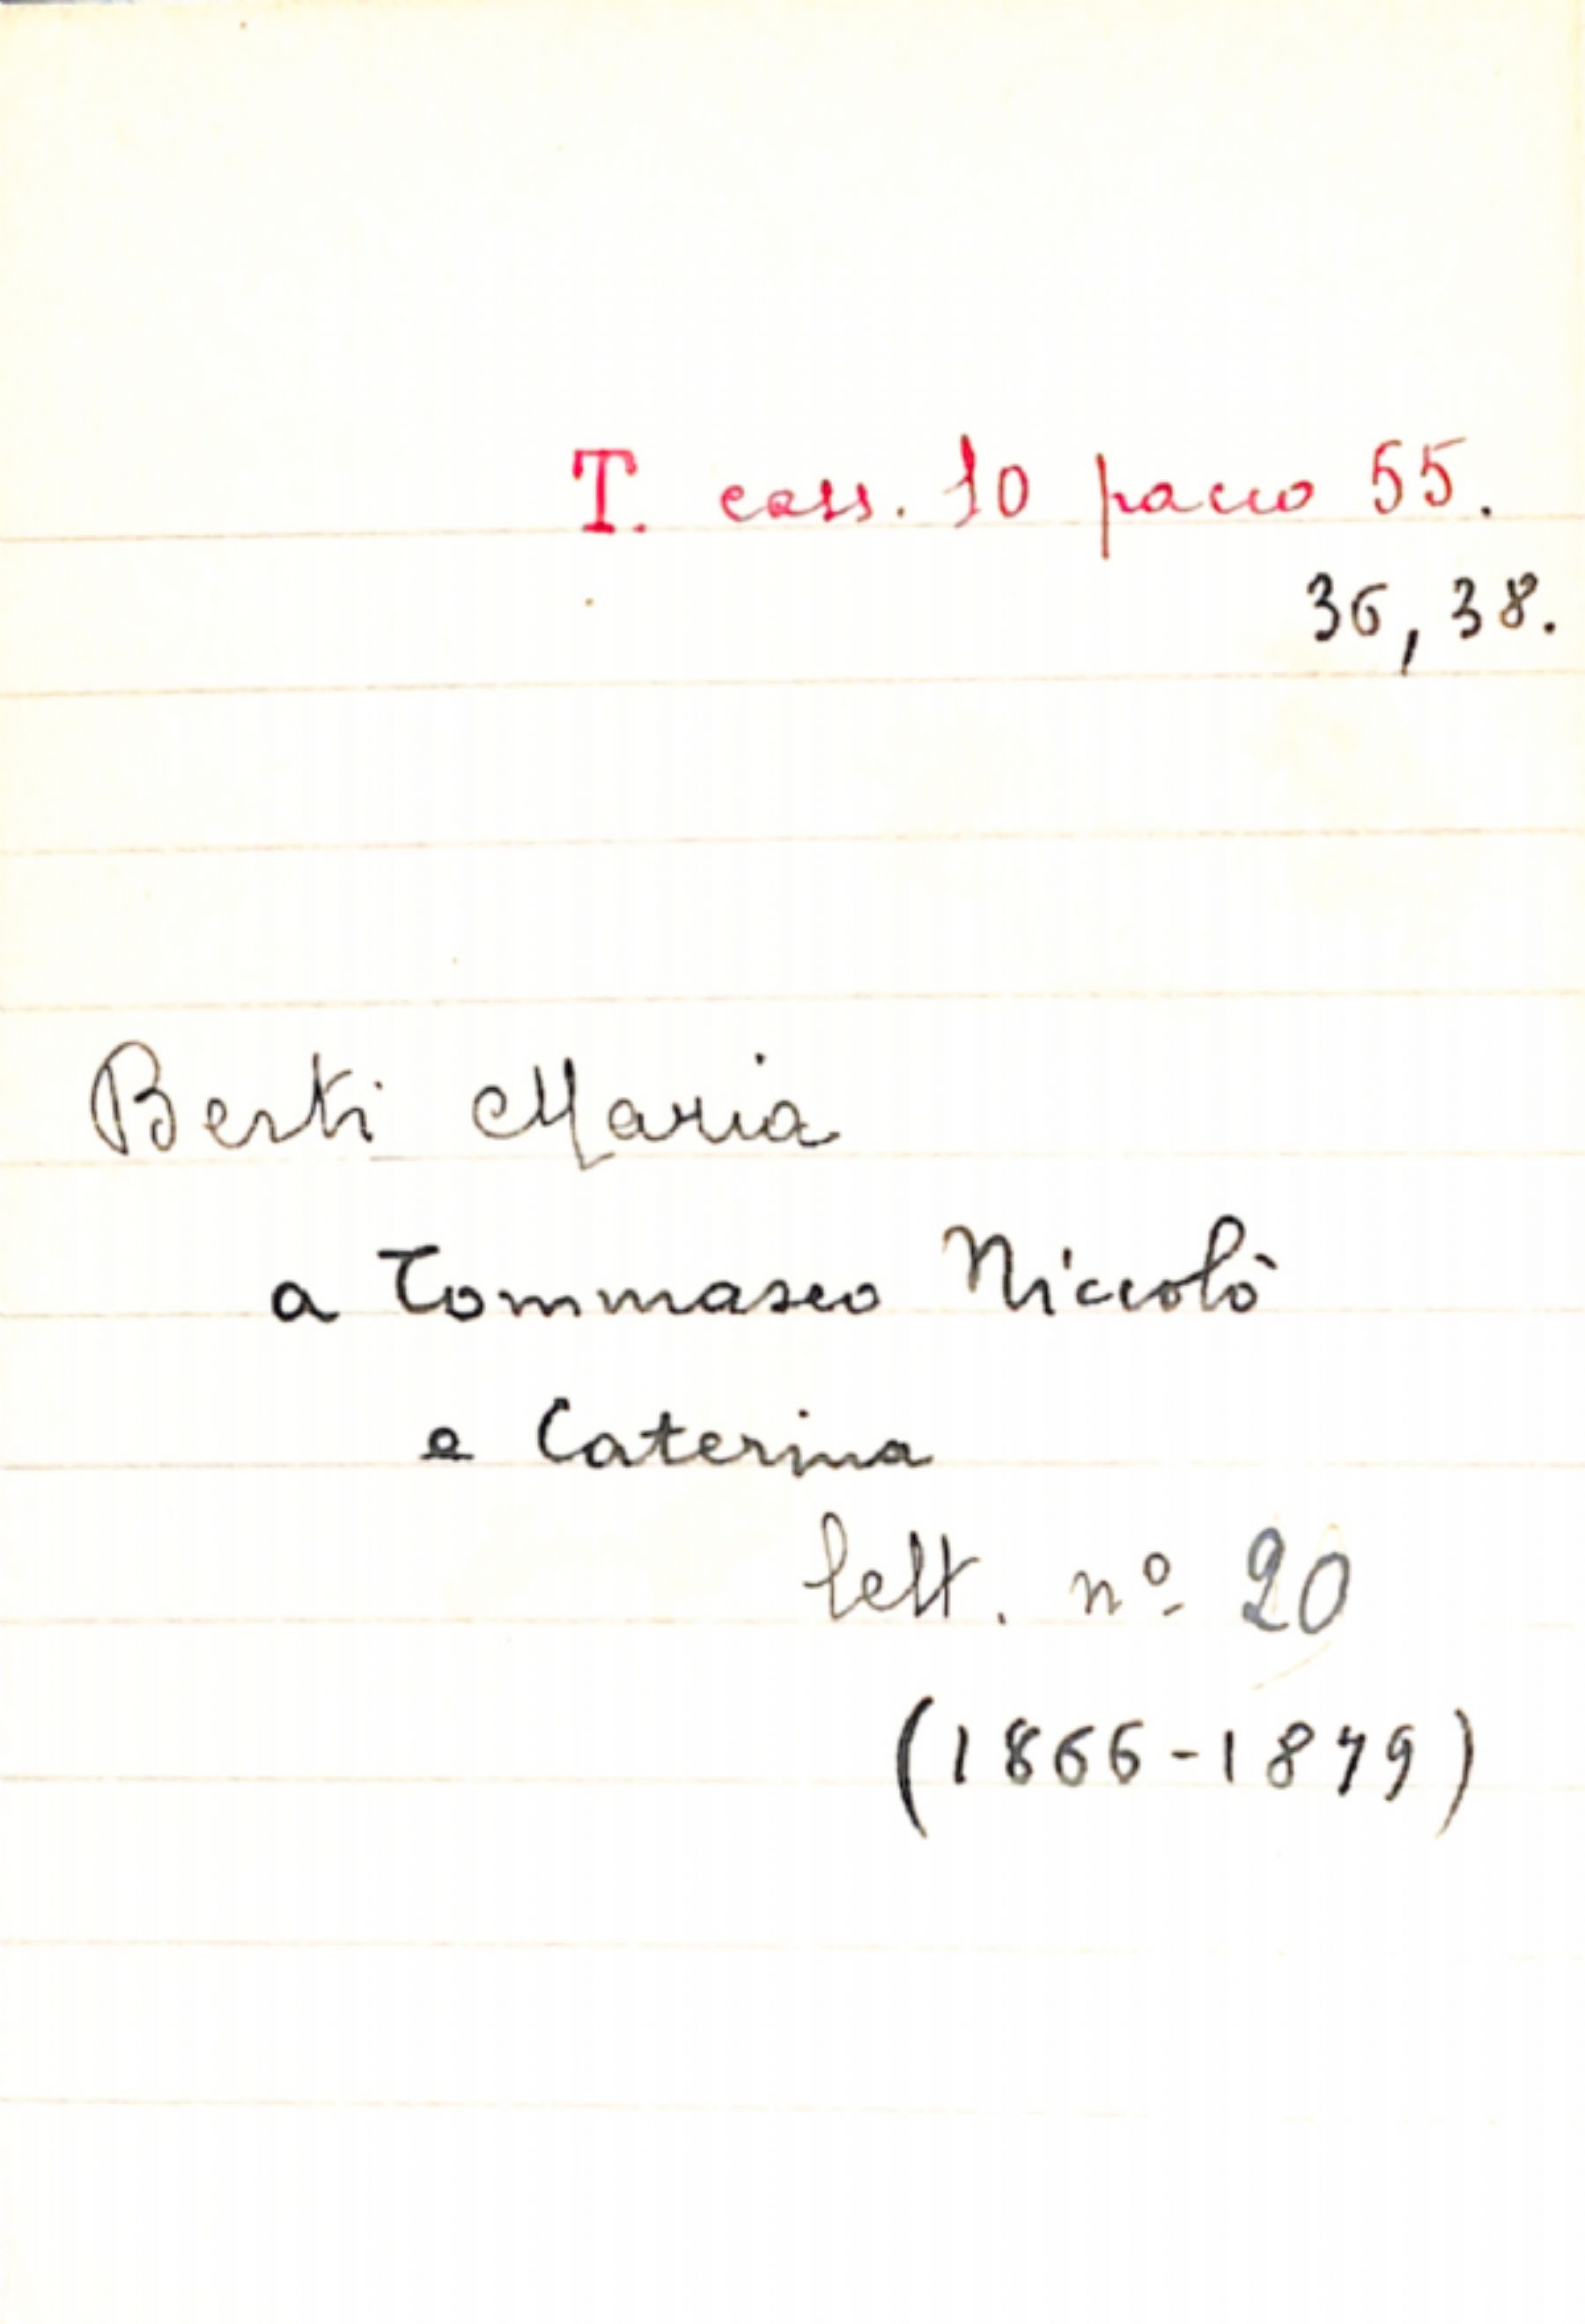 T. cass. 10 pacco 55.
36, 38.
Berti Maria
a Tommaseo Niccolò
e Caterina
lett. nº 20
(1866-1879)